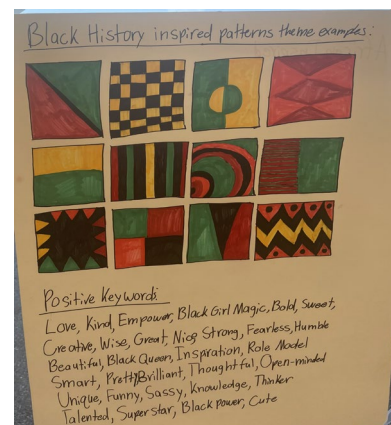 Black History inspired patterns theme examples:
Positive Keywords:
Love, Kind, Empower, Black Girl Magic, Bold, Sweet,
Creative, Wise, Great, Nice, Strong, Fearless, Humble
Beautiful, Black Queen, Inspiration, Role Model
Smart, Pretty, Brilliant, Thoughtful, Open-minded
Unique, Funny, Sassy, Knowledge, Thinker
Talented, Super star, Black power, Cute